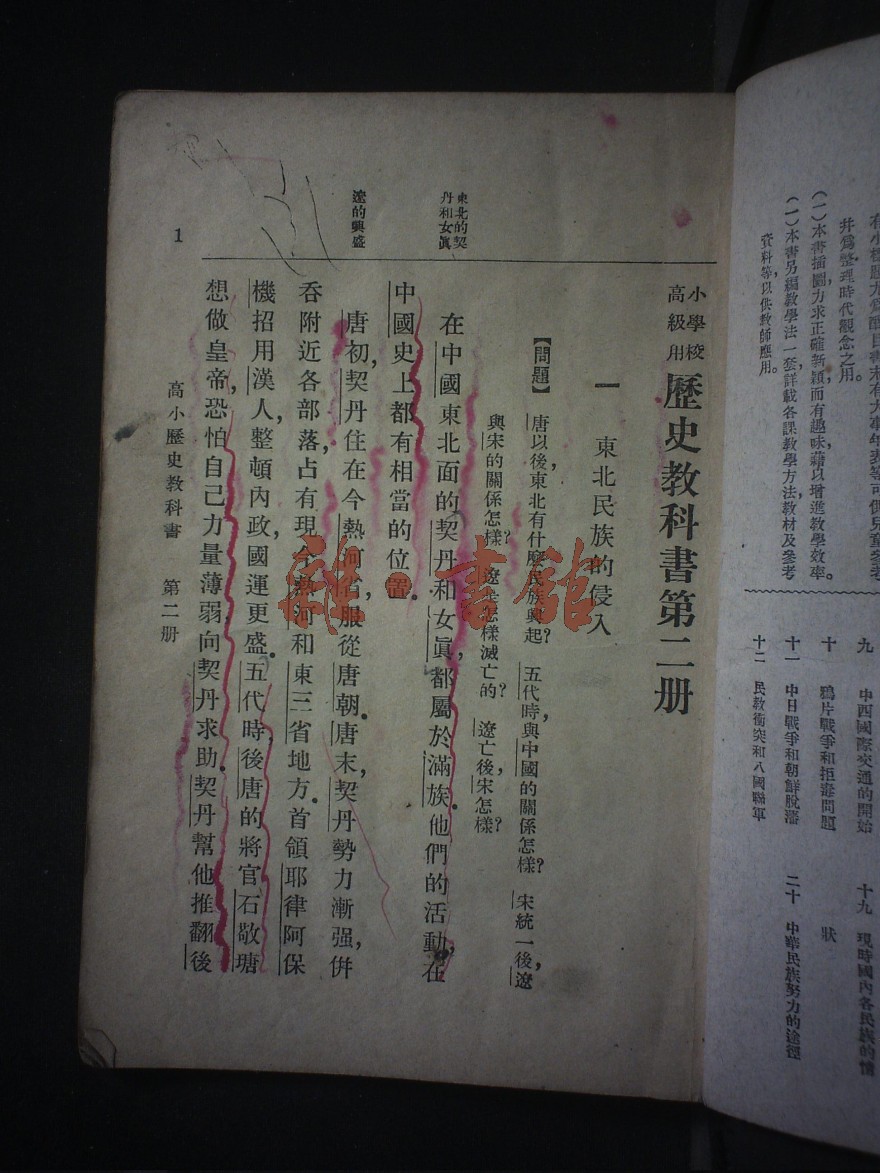 井爲整理時代觀念之用。
(一)本書插圖力求正確新穎,而有趣味,藉以增進教學效率。
(一)本書另編教學法一套,詳載各課教學方法,教材及參考
資料等,以供教師應用。
九 中西國際交通的開始
十 鴉片戰爭和拒毒問題
十一 中日戰爭和朝鮮脫藩
十二 民教衝突和八國聯軍
十九 現時國內各民族的情
狀
二十 中華民族努力的途徑
小學校高級用 歷史教科書第二册
一 東北民族的侵入
【問題】 唐以後,東北有什麼民族興起? 五代時,與中國的關係怎樣? 宋統一後,遼
與宋的關係怎樣? 遼是怎樣滅亡的? 遼亡後,宋怎樣?
東北的契
丹和女眞
在中國東北面的契丹和女眞,都屬於滿族。他們的活動,在
中國史上都有相當的位置。
遼的興盛
唐初,契丹住在今熱河省,服從唐朝。唐末,契丹勢力漸强,併
吞附近各部落,占有現今熱河和東三省地方。首領耶律阿保
機招用漢人,整頓內政,國運更盛。五代時,後唐的將官石敬瑭
想做皇帝,恐怕自己力量薄弱,向契丹求助。契丹幫他推翻後
高小歷史教科書 第二册
1
龍·書館